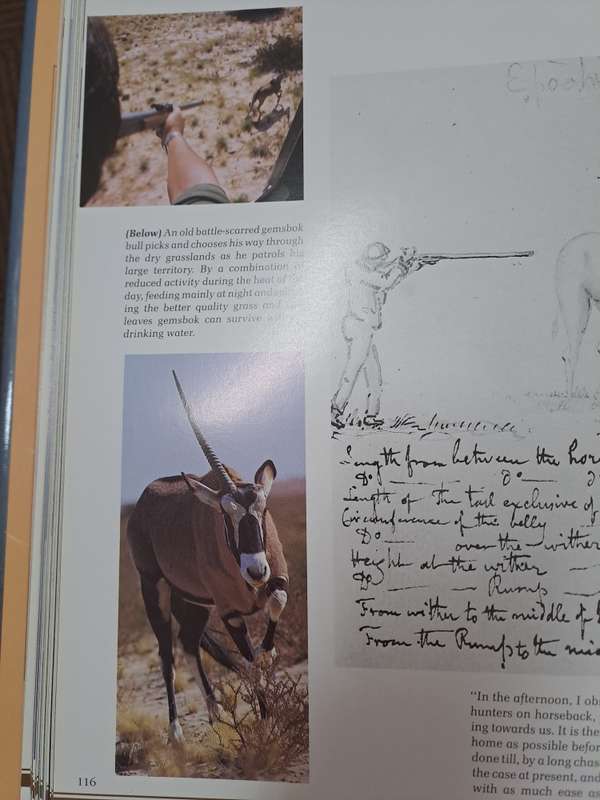 (Below) An old battle-scarred gemsbok
bull picks and chooses his way through
the dry grasslands as he patrols his
large territory. By a combination of
reduced activity during the heat of the
day, feeding mainly at night and
ing the better quality grass and
leaves gemsbok can survive
drinking water.
116
Length from between the hor
Do Do
Length of the tail exclusive of
Circumference of the belly
Do over the wither
Height at the wither
Do Rump
From wither to the middle of
From the Rump to the mid
"In the afternoon, I obs
hunters on horseback,
ing towards us. It is the
home as possible befor
done till, by a long chas
the case at present, and
with as much ease as